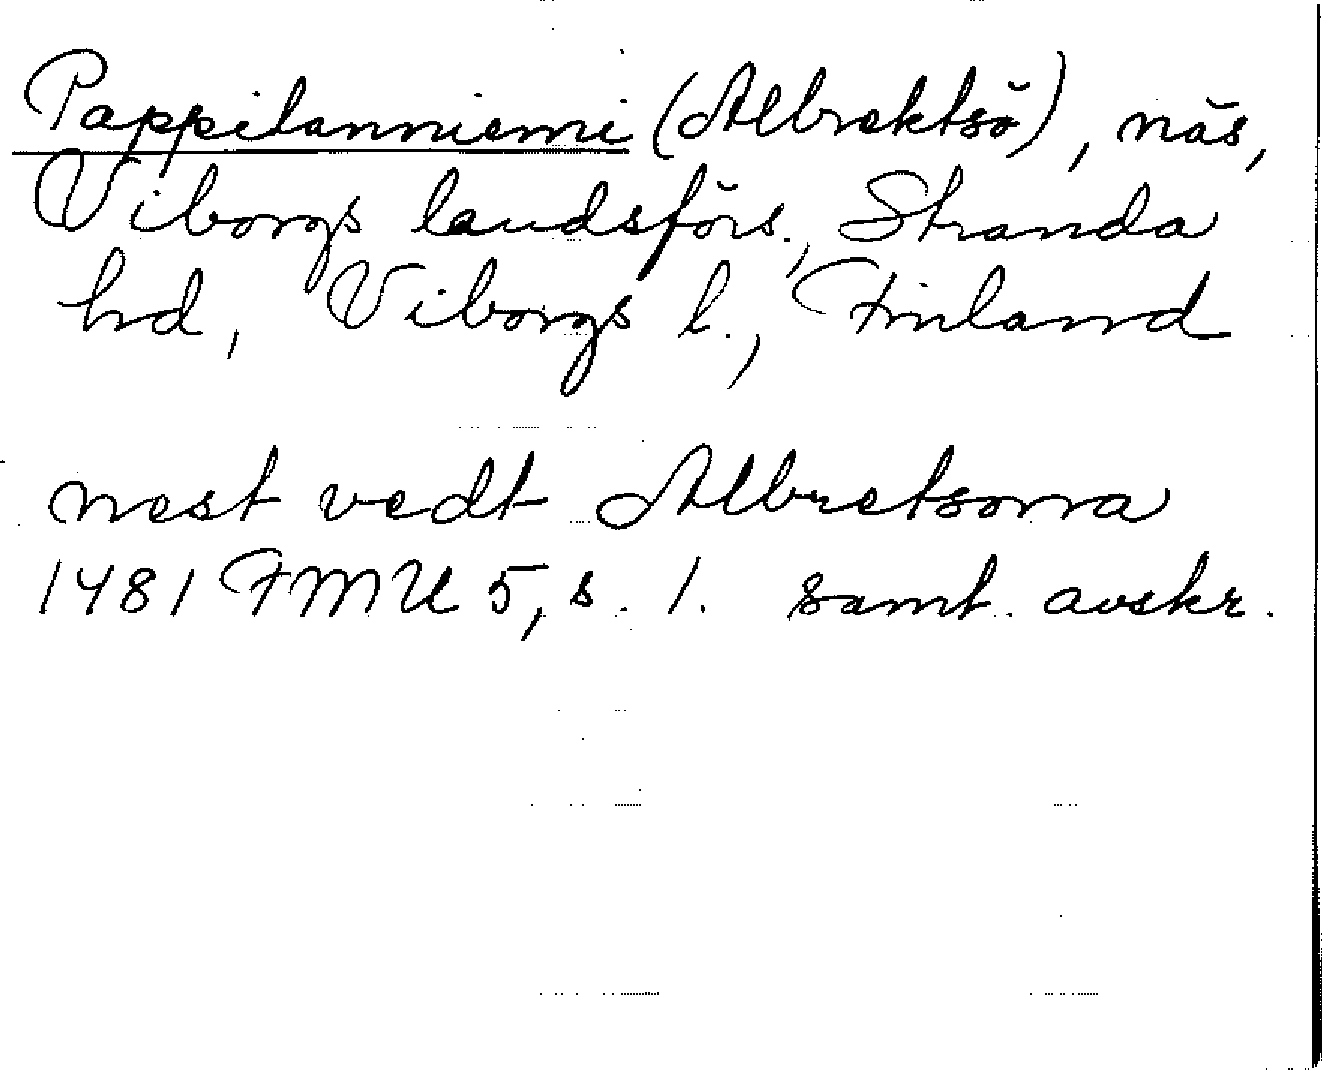 Pappilanniemi (Albrektsö), näs,
Viborgs landsförs., Stranda
hd, Viborgs l., Finland
nest vedt Albretsorra
1481 FMU 5, s. 1. samt. avskr.